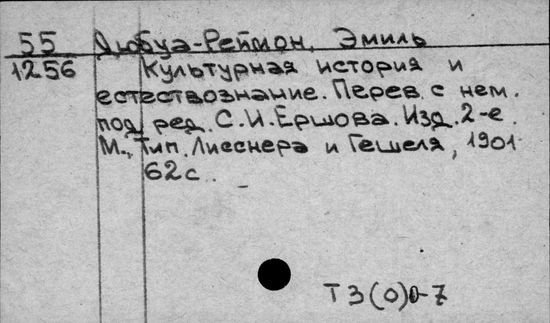 55 Дюбуа-Реймон, Эмиль
1256 Культурная история и
естествознание. Перев. с нем.
под ред. С.И.Ершова. Изд. 2-е.
М., Тип. Лисснера и Гешеля, 1901
62 с.
Т3(0)0-7